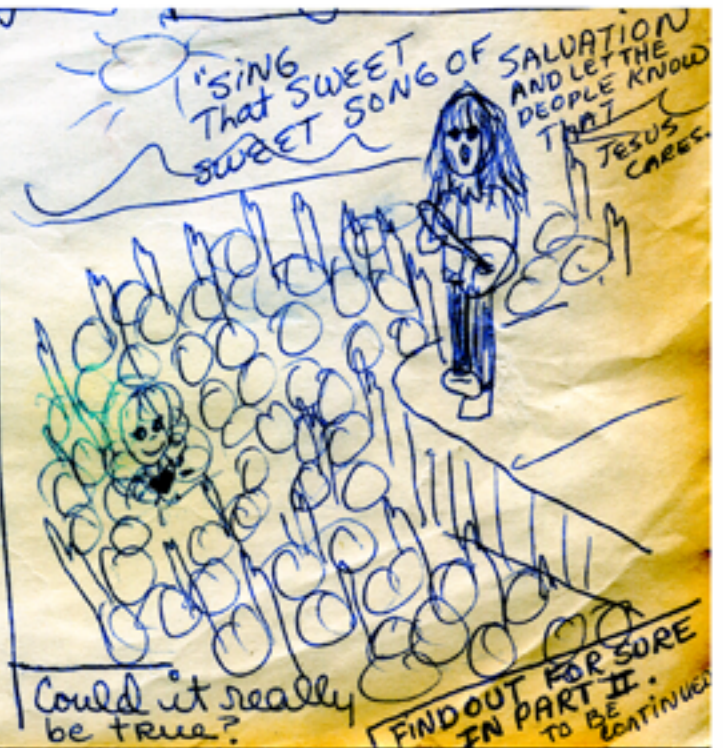 "SING
That SWEET
SWEET SONG OF
SALVATION
AND LET THE
PEOPLE KNOW
THAT
JESUS
CARES.
Could it really
be true?
FIND OUT FOR SURE
IN PART II.
TO BE
CONTINUED